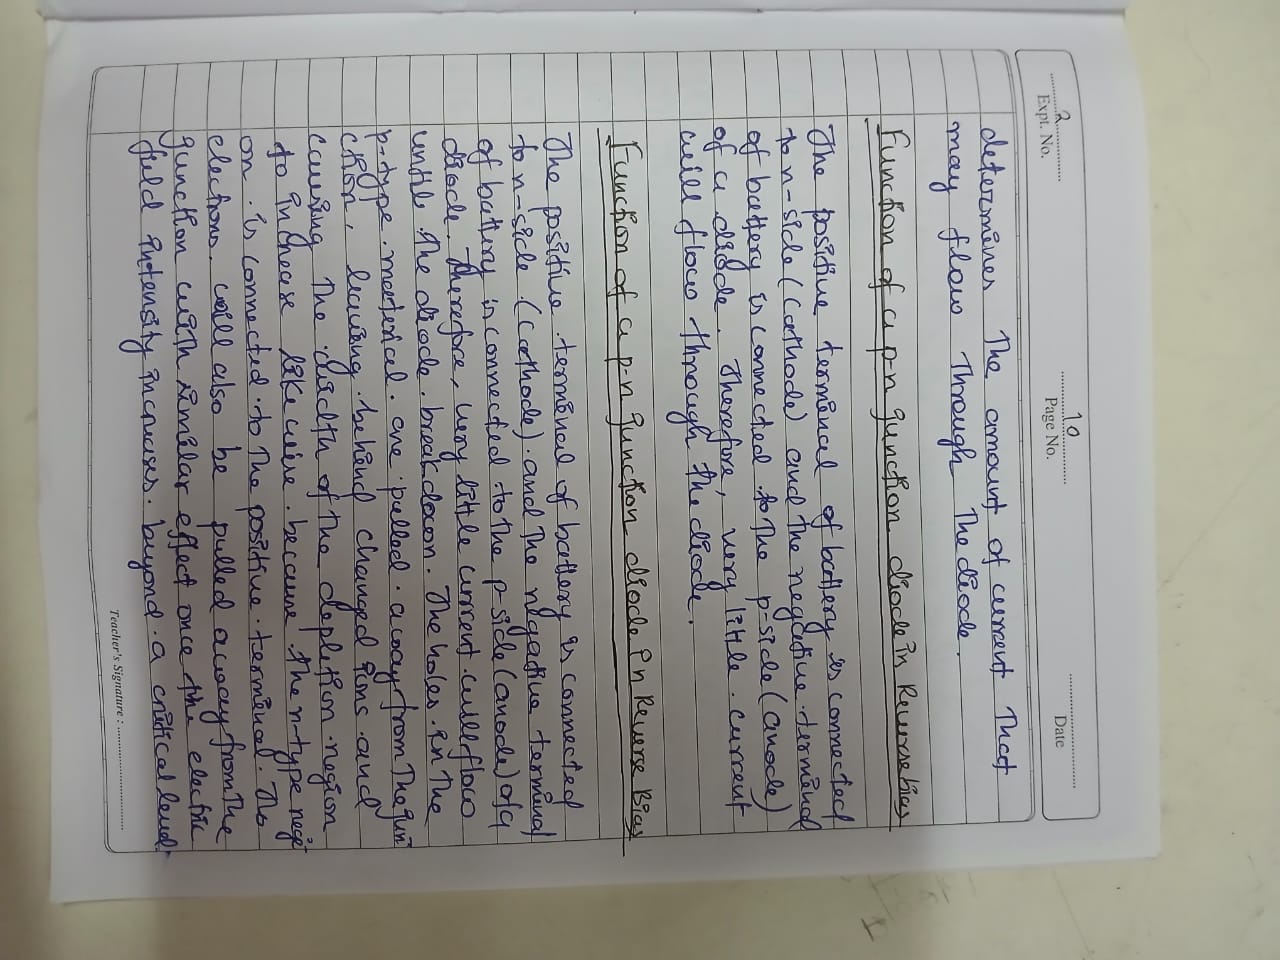 2
Expt. No.
10
Page No.
Date
determines The amount of current That
may flow Through The diode.
Function of a p-n junction diode in Reverse bias
The positive terminal of battery is connected
to n-side (cathode) and the negative terminal
of battery is connected to the p-side (anode)
of a diode. Therefore, very little current
will flow through the diode.
Function of a p-n junction diode in Reverse Bias
The positive terminal of battery is connected
to n-side (cathode) and The negative terminal
of battery is connected to the p-side (anode) of a
diode. Therefore, very little current will flow
until The diode breakdown. The holes in The
p-type material are pulled away from The jun
ction, leaving behind charged ions and
causing The width of The depletion region
to increase likewise because the n-type regi
on is connected to The positive terminal. The
electrons will also be pulled away from The
junction with similar effect once the electric
field intensity increases beyond a critical level
Teacher's Signature :